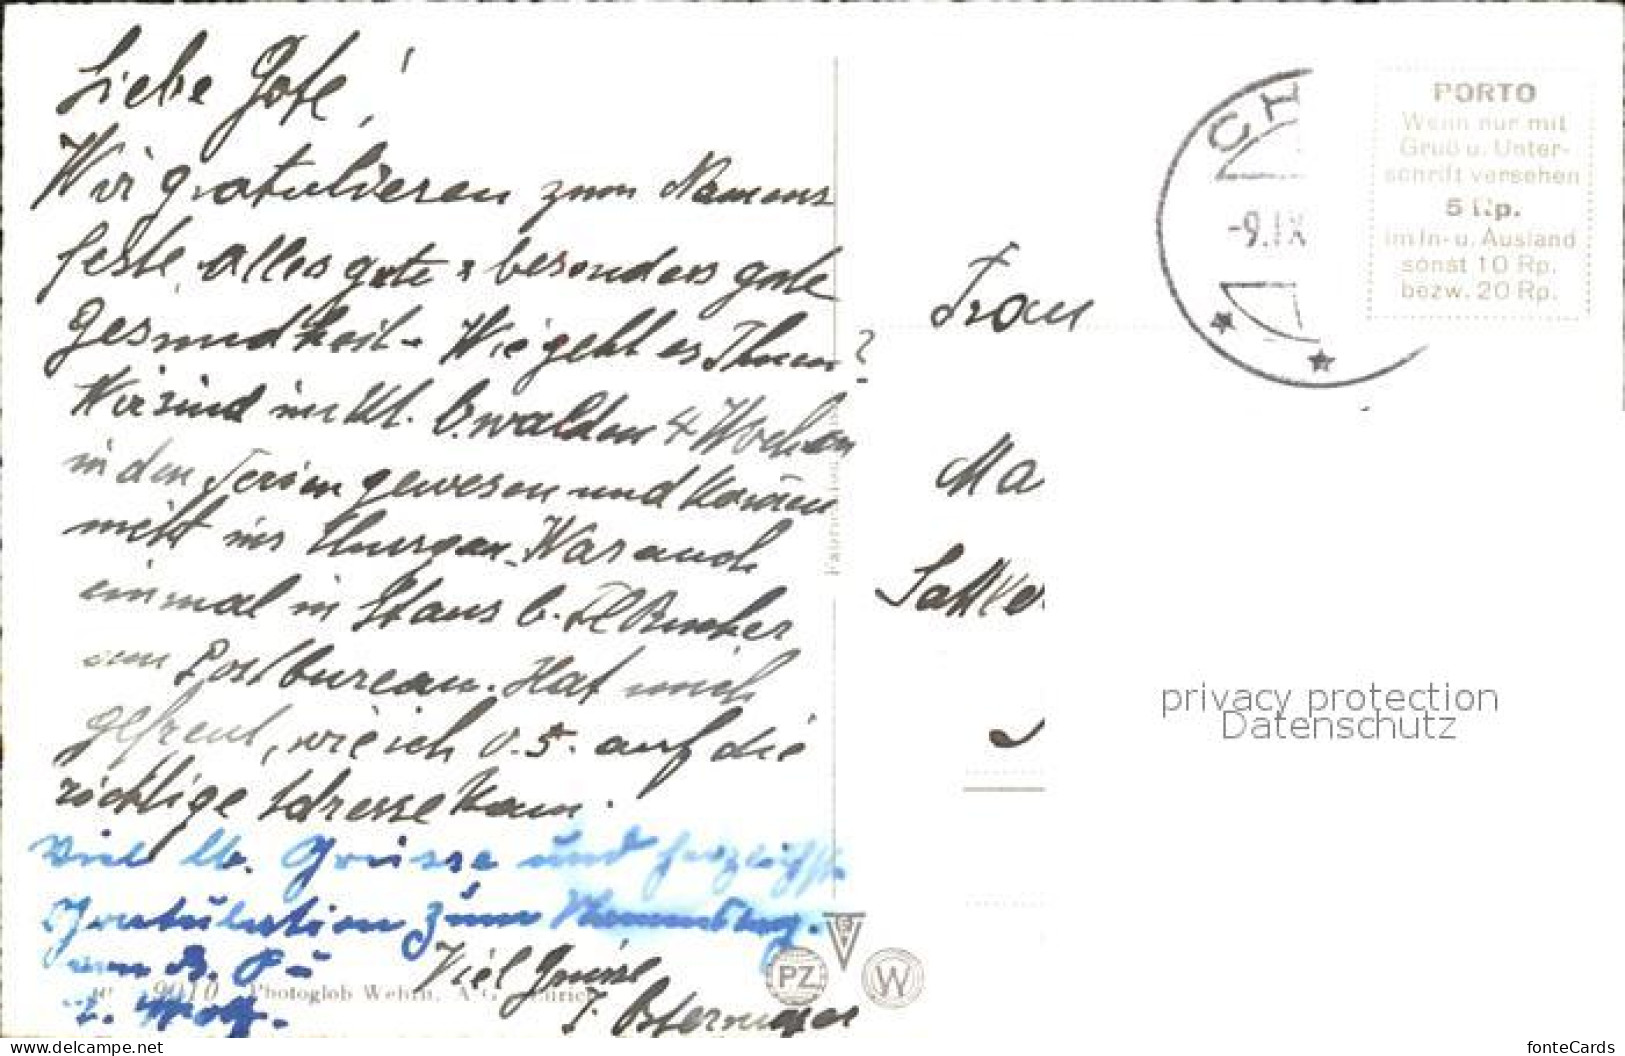 Liebe Gote!
Wir gratulieren zum Namens
feste, alles gute & besonders gute
Gesundheit. Wie geht es Ihnen?
Wir sind im Kt. O.walden 4 Wochen
in den Ferien gewesen und kamen
nicht ins Thurgau. War auch
einmal in Stans b. Frl Bucher
vom Postbureau. Hat mich
gefreut, wie ich v. S. auf die
richtige Adresse kam.
Viel lb. Grüsse und herzlichste
Gratulation zum Namenstag.
von
Viel Grüsse
9010 Photoglob Wehrli, A.G. Zürich
PZ W
Frau
Ma
CH
-9.IX
PORTO
Wenn nur mit
Gruß u. Unter-
schrift versehen
5 Rp.
im In- u. Ausland
sonst 10 Rp.
bezw. 20 Rp.
privacy protection
Datenschutz
www.delcampe.net
fonteCards